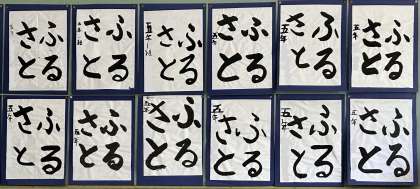 ふる
さと
五年
ふる
さと
五年
ふる
さと
五年
ふる
さと
五年
ふる
さと
ふる
さと
ふる
さと
五年
ふる
さと
五年
ふる
さと
五年
ふる
さと
五年
ふる
さと
五年
ふる
さと
五年